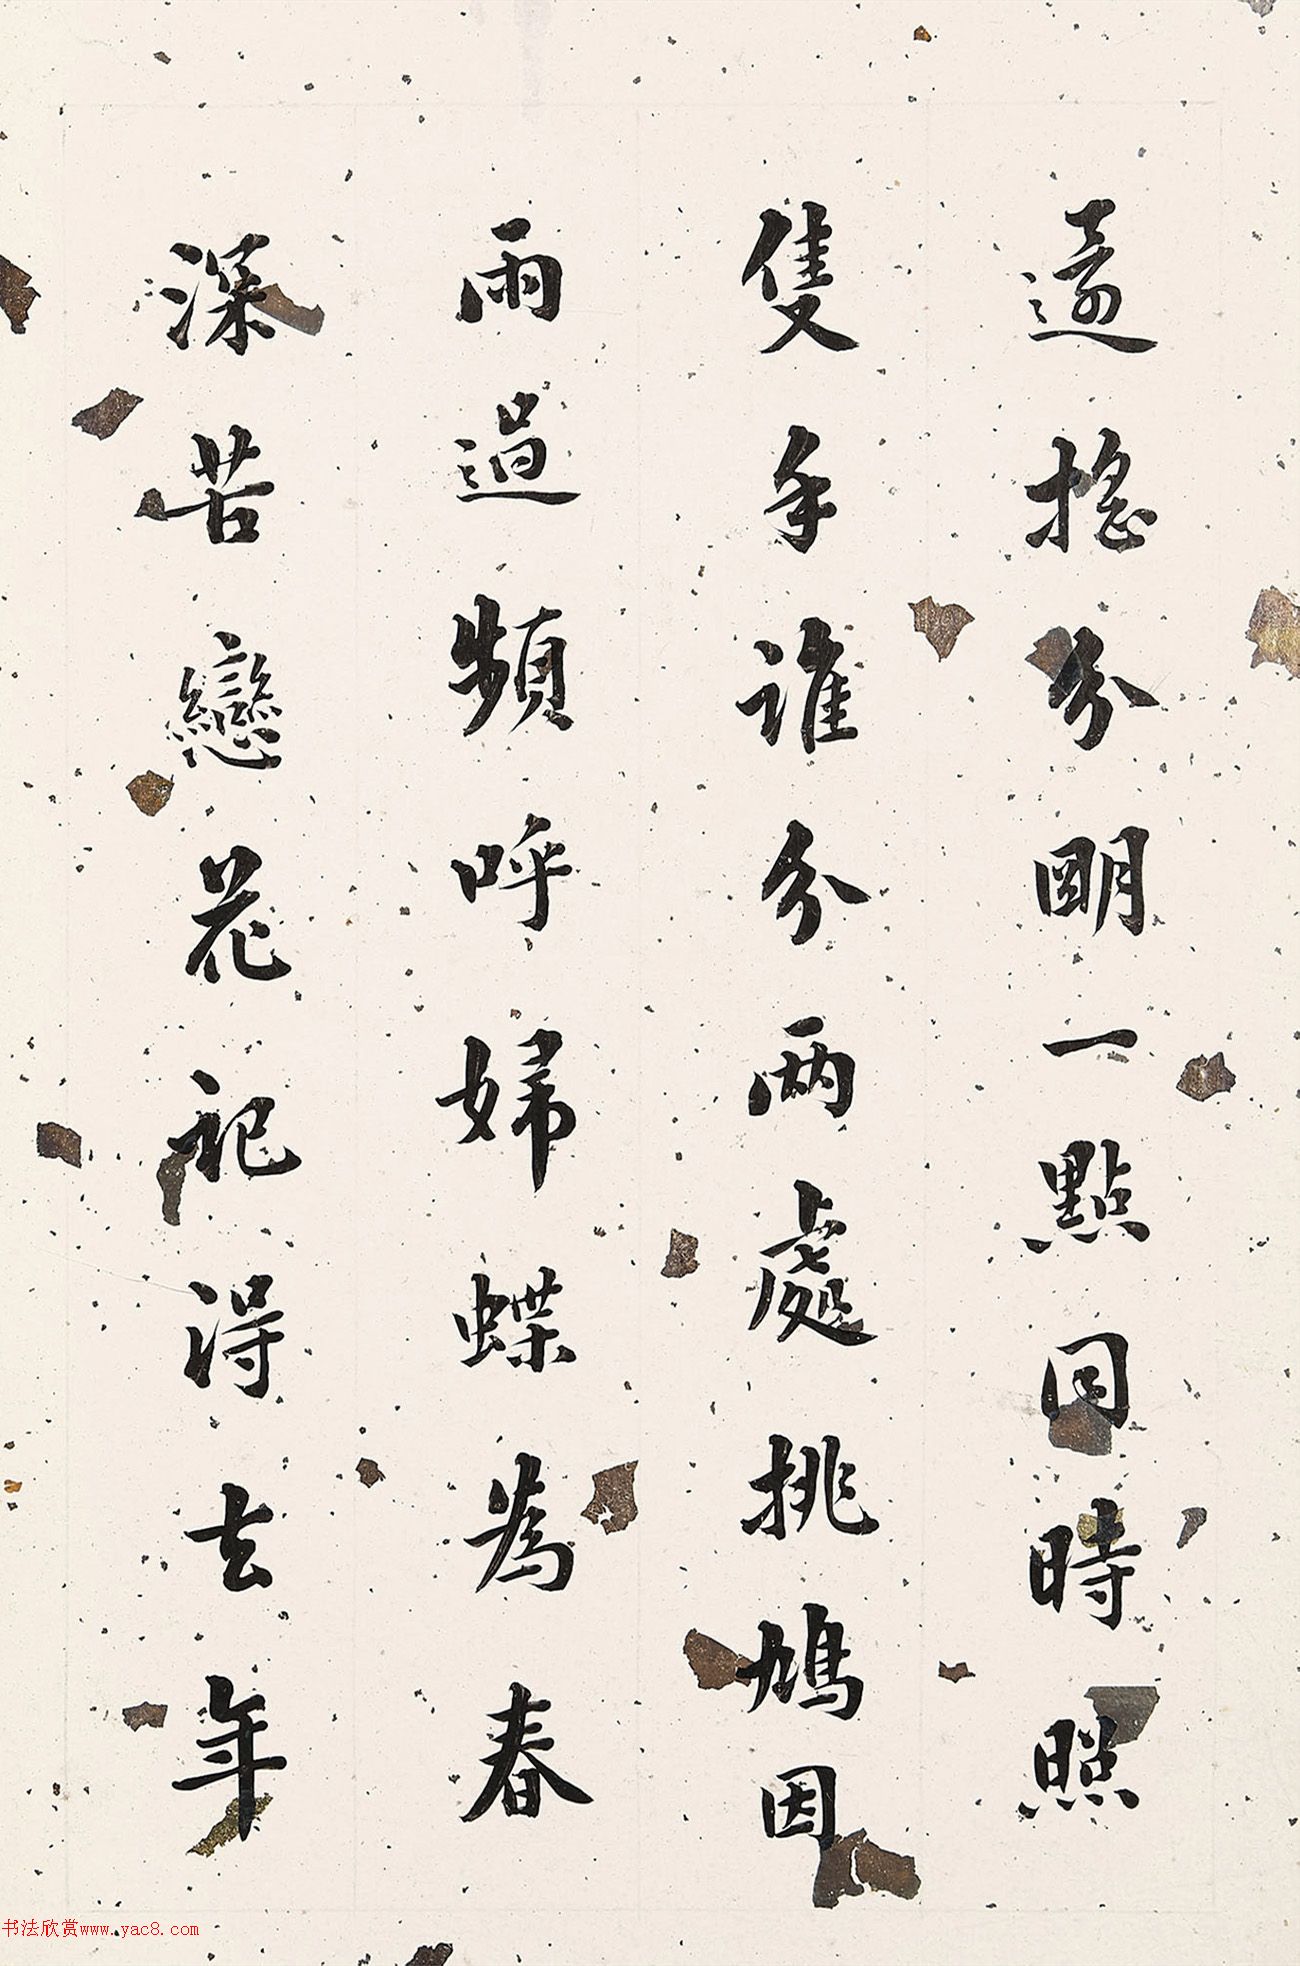 還搖分明一點同時照
隻手誰分兩處挑鳩因
雨過頻呼婦蝶為春
深苦戀花記得去年
书法欣赏www.yac8.com